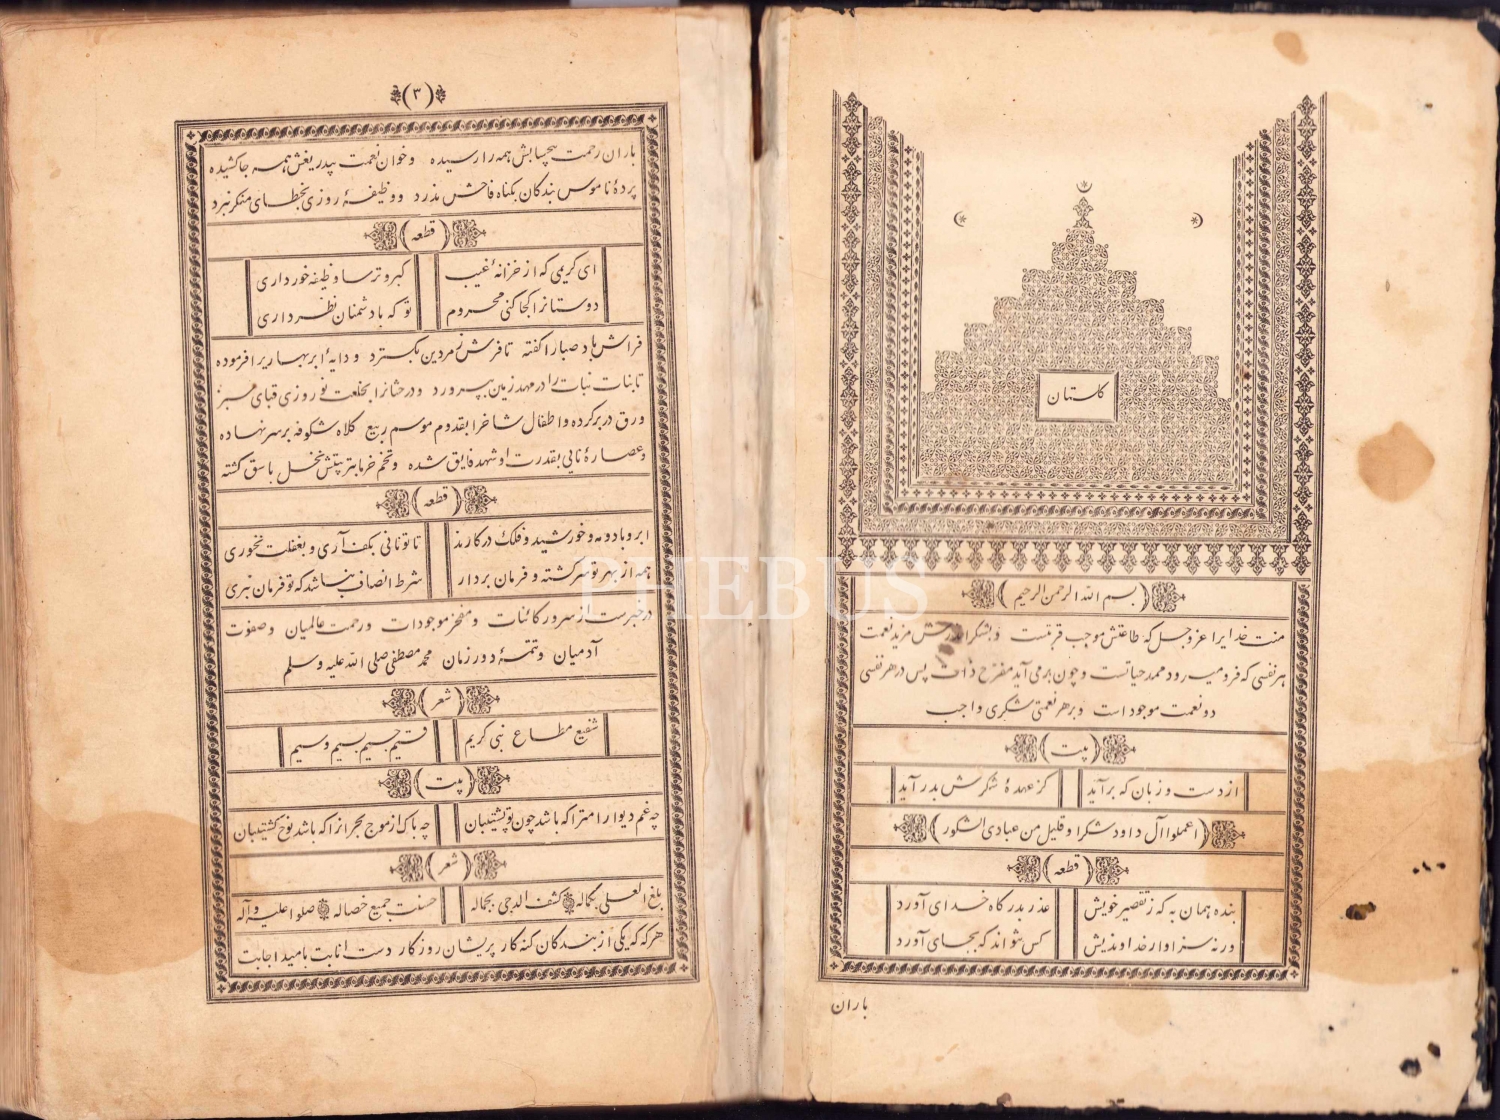 گلستان
بسم الله الرحمن الرحیم
منت خدایرا عز و جل که طاعتش موجب قربتست و بشکر اندرش مزید نعمت
هر نفسی که فرو میرود ممد حیاتست و چون بر می آید مفرح ذات پس در هر نفسی
دو نعمت موجود است و بر هر نعمتی شکری واجب
بیت
از دست و زبان که بر آید کز عهدهٔ شکرش بدر آید
اعملوا آل داود شکرا و قلیل من عبادی الشکور
قطعه
بنده همان به که ز تقصیر خویش عذر بدرگاه خدای آورد
ور نه سزاوار خداوندیش کس نتواند که بجای آورد
باران
(۳)
باران رحمت بیحسابش همه را رسیده و خوان نعمت بیدریغش همه جا کشیده
پردهٔ ناموس بندکان بکناه فاحش ندرد و وظیفهٔ روزی بخطای منکر نبرد
قطعه
ای کریمی که از خزانهٔ غیب کبر و ترسا وظیفه خور داری
دوستانرا کجا کنی محروم تو که با دشمنان نظر داری
فراش باد صبارا کفته تا فرش زمردین بکسترد و دایهٔ ابر بهاریرا فرموده
تا بنات نبات را در مهد زمین بپرورد و درختانرا بخلعت نوروزی قبای سبز
ورق در بر کرده و اطفال شاخرا بقدوم موسم ربیع کلاه شکوفه بر سر نهاده
و عصارهٔ نایی بقدرت او شهد فایق شده و تخم خرما بتربیتش نخل باسق کشته
قطعه
ابر و باد و مه و خورشید و فلک در کارند تا تو نانی بکف آری و بغفلت نخوری
همه از بهر تو سرکشته و فرمان بردار شرط انصاف نباشد که تو فرمان نبری
در خبرست از سرور کائنات و مفخر موجودات و رحمت عالمیان و صفوت
آدمیان و تتمهٔ دور زمان محمد مصطفی صلی الله علیه وسلم
شعر
شفیع مطاع نبی کریم قسیم جسیم بسیم وسیم
بیت
چه غم دیوار امترا که باشد چون تو پشتیبان چه باک از موج بحر انرا که باشد نوح کشتیبان
شعر
بلغ العلی بکماله کشف الدجی بجماله حسنت جمیع خصاله صلوا علیه وآله
هر که که یکی از بندکان کنه کار پریشان روزکار دست انابت بامید اجابت
PHEBUS